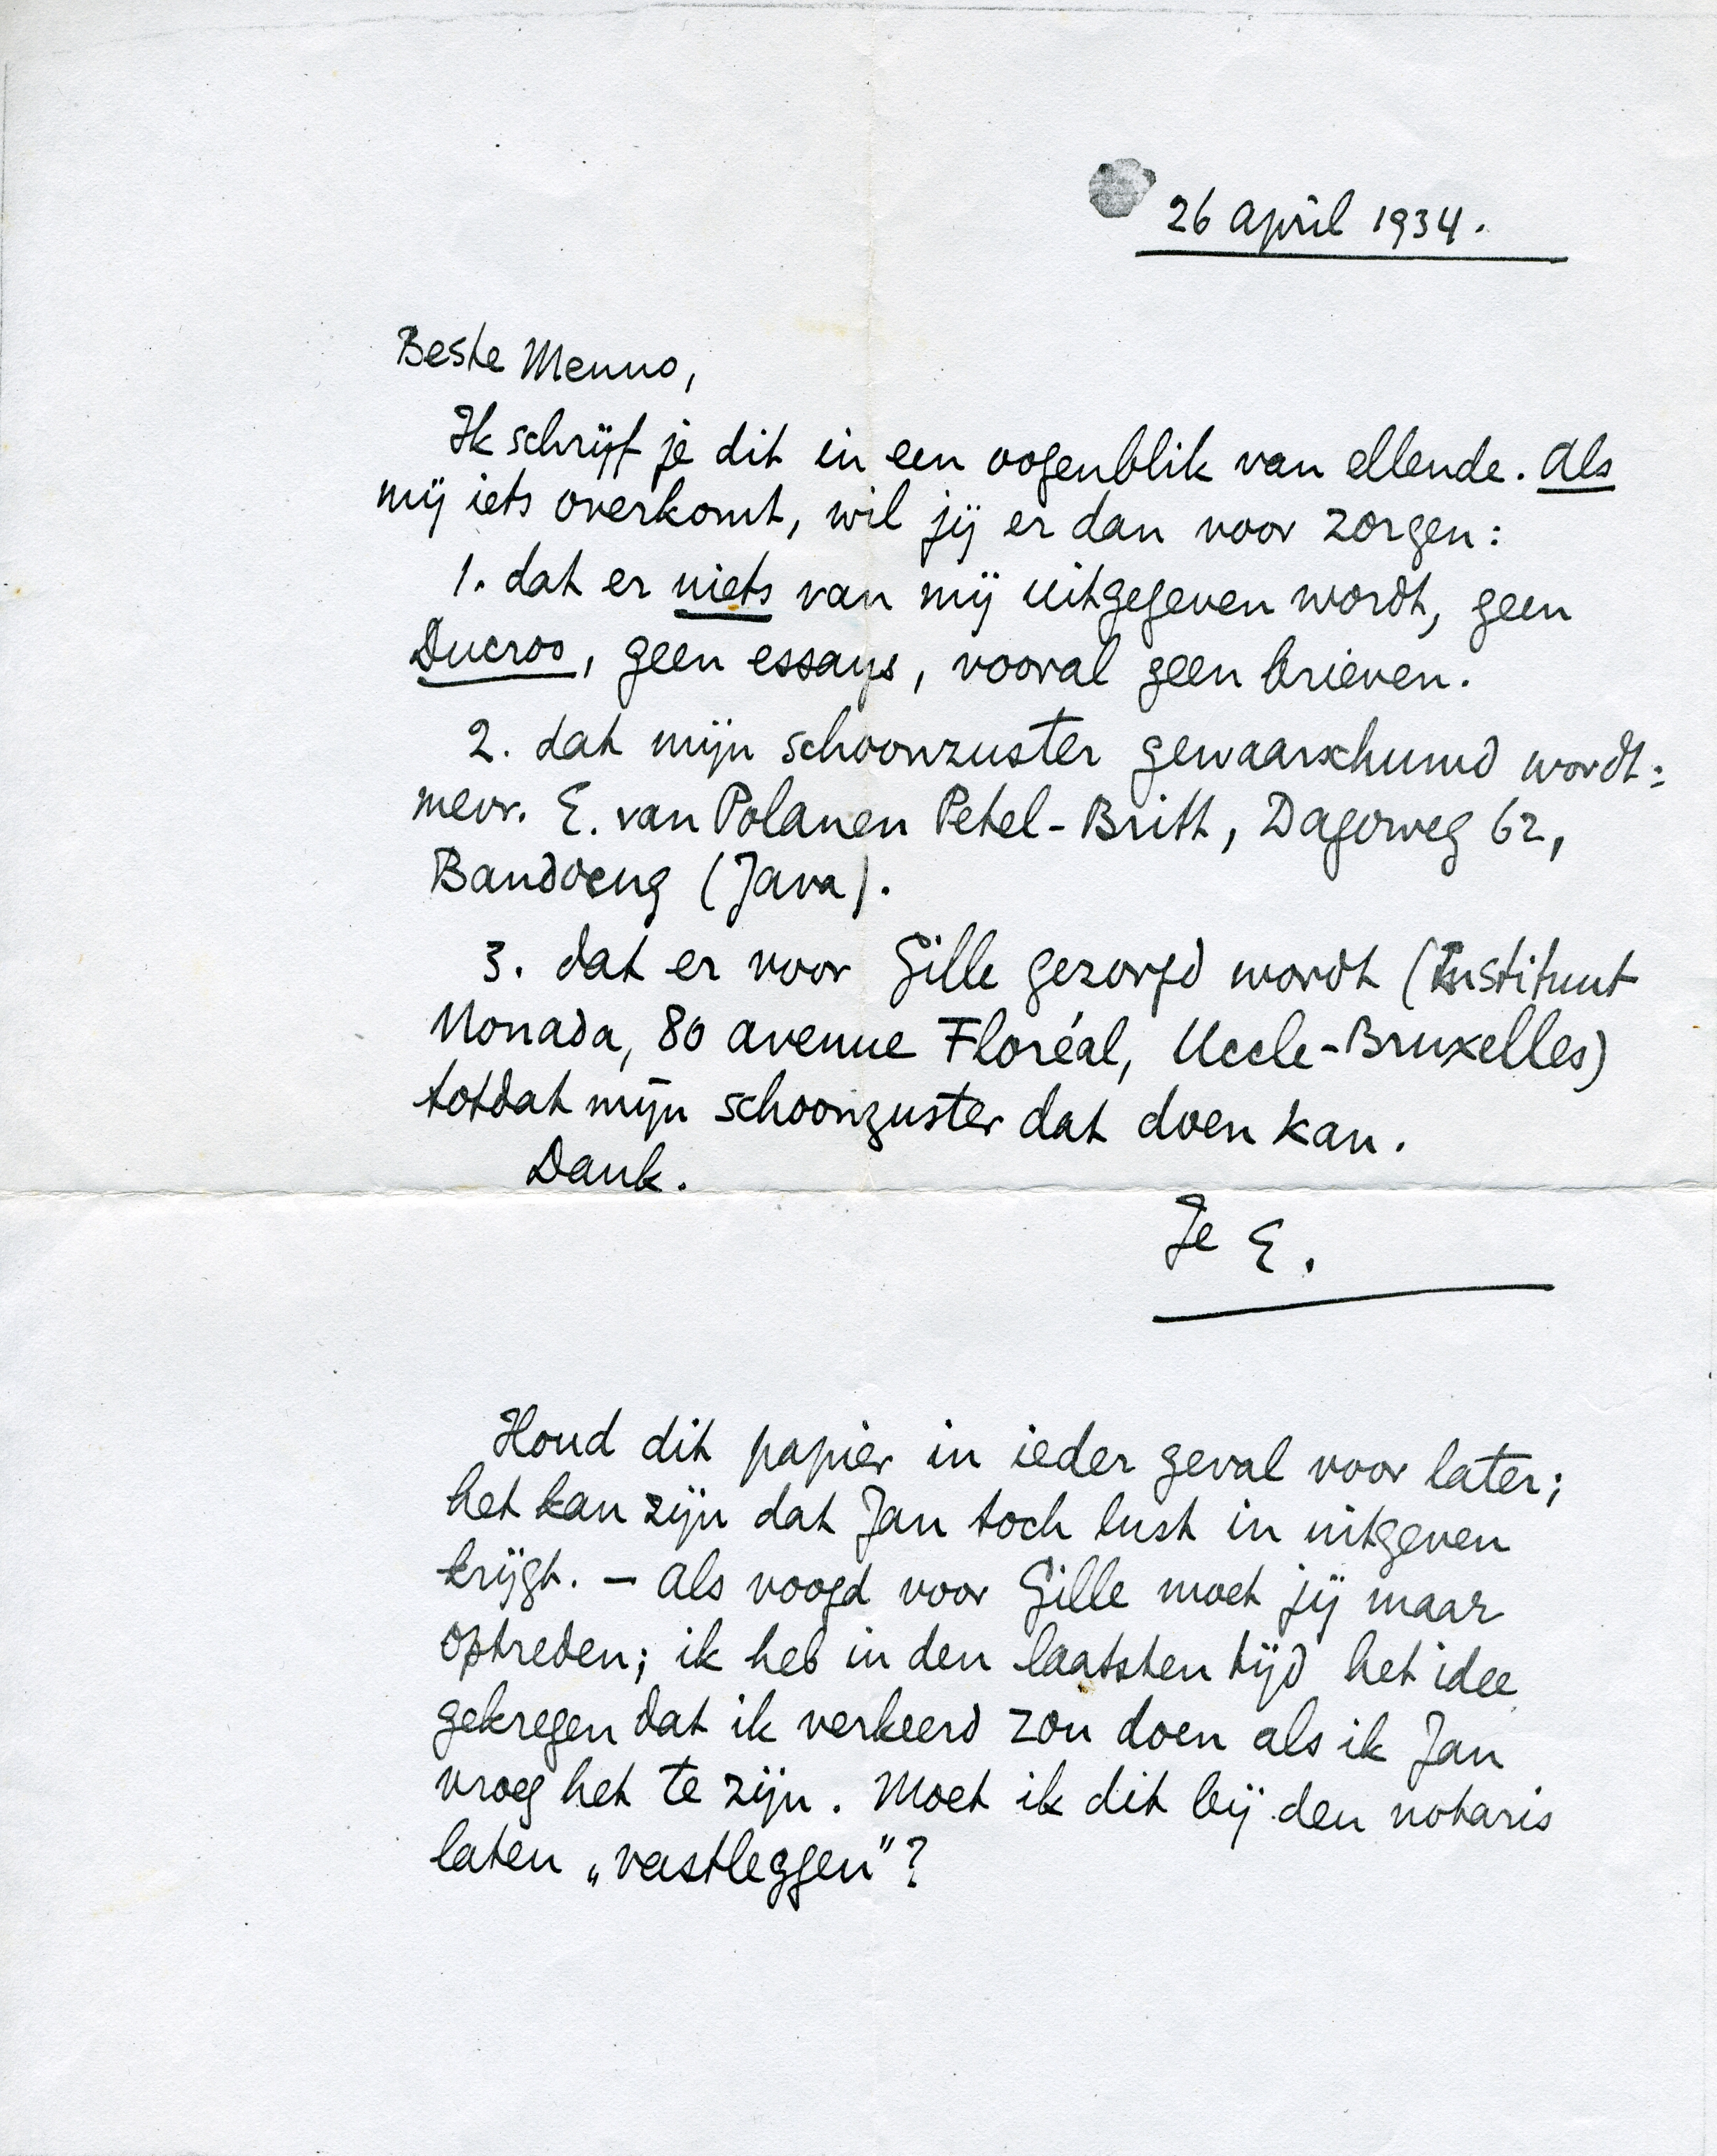 26 April 1934.
Beste Menno,
Ik schrijf je dit in een oogenblik van ellende. Als
mij iets overkomt, wil jij er dan voor zorgen:
1. dat er niets van mij uitgegeven wordt, geen
Ducroo, geen essays, vooral geen brieven.
2. dat mijn schoonzuster gewaarschuwd wordt:
mevr. E. van Polanen Petel-Britt, Dagoweg 62,
Bandoeng (Java).
3. dat er voor Gille gezorgd wordt (Instituut
Monada, 80 avenue Floréal, Uccle-Bruxelles)
totdat mijn schoonzuster dat doen kan.
Dank.
Je E.
Houd dit papier in ieder geval voor later;
het kan zijn dat Jan toch lust in uitgeven
krijgt. – Als voogd voor Gille moet jij maar
optreden; ik heb in den laatsten tijd het idee
gekregen dat ik verkeerd zou doen als ik Jan
vroeg het te zijn. Moet ik dit bij den notaris
laten „vastleggen"?